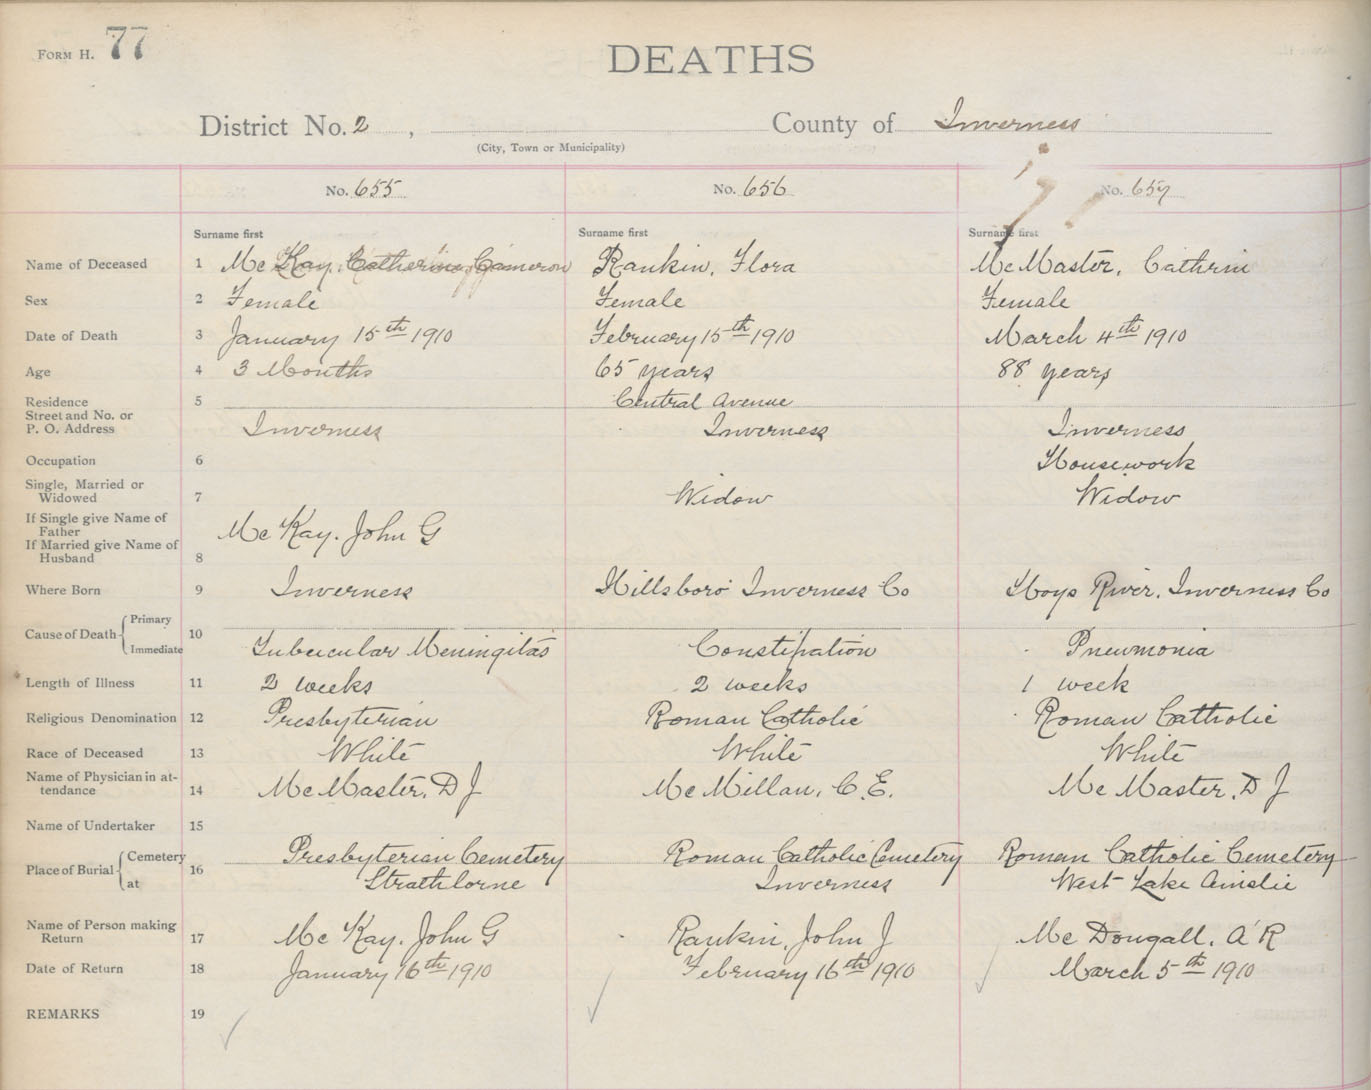 FORM H. 77
DEATHS
District No. 2 , County of Inverness
(City, Town or Municipality)
No. 655 No. 656 No. 657
Surname first Surname first Surname first
Name of Deceased 1 Mc Kay, Catherine Cameron Rankin, Flora McMaster, Cathrin
Sex 2 Female Female Female
Date of Death 3 January 15th 1910 February 15th 1910 March 4th 1910
Age 4 3 Months 65 years 88 years
Residence 5 Central Avenue
Street and No. or
P. O. Address Inverness Inverness Inverness
Occupation 6 Housework
Single, Married or
Widowed 7 Widow Widow
If Single give Name of
Father Mc Kay. John G
If Married give Name of
Husband 8
Where Born 9 Inverness Hillsboro Inverness Co Hays River, Inverness Co
Cause of Death { Primary 10
Immediate Tubercular Meningitas Constipation Pneumonia
Length of Illness 11 2 weeks 2 weeks 1 week
Religious Denomination 12 Presbyterian Roman Catholic Roman Catholic
Race of Deceased 13 White White White
Name of Physician in at-
tendance 14 Mc Master, D J Mc Millan, C. E. Mc Master, D J
Name of Undertaker 15
Place of Burial { Cemetery 16 Presbyterian Cemetery Roman Catholic Cemetery Roman Catholic Cemetery
at Strathlorne Inverness West Lake Ainslie
Name of Person making
Return 17 Mc Kay, John G Rankin, John J Mc Dougall, A R
Date of Return 18 January 16th 1910 February 16th 1910 March 5th 1910
REMARKS 19